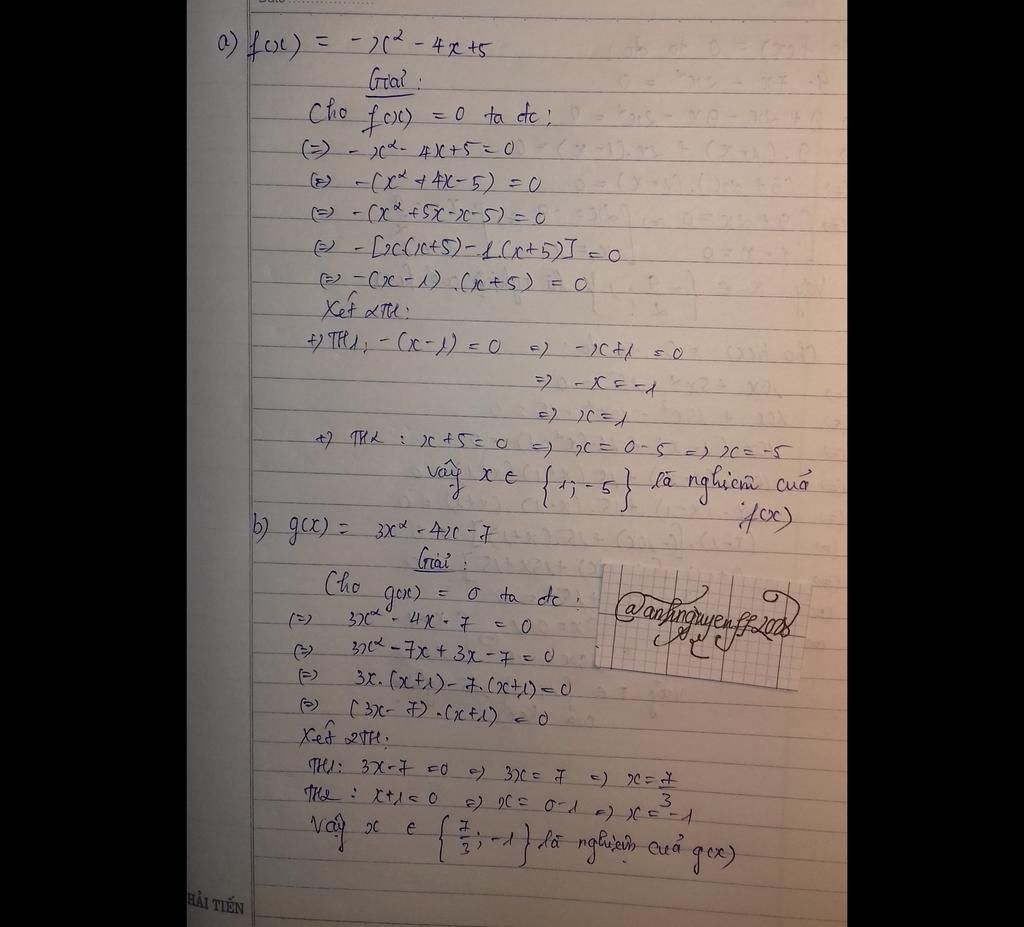 a) f(x) = -x² - 4x+5
Giải:
Cho f(x) = 0 ta đc:
(=) - x² - 4x+5 = 0
(=) -(x² + 4x-5) = 0
(=) -(x² +5x-x-5) = 0
(=) -[x(x+5)-1.(x+5)] = 0
(=) -(x-1).(x+5) = 0
Xét 2TH:
+) TH1: -(x-1) = 0 => -x+1 = 0
=> -x = -1
=> x = 1
+) TH2 : x+5 = 0 => x = 0-5 => x = -5
Vậy x ∈ {1; -5} là nghiệm của
f(x)
b) g(x) = 3x² - 4x - 7
Giải:
Cho g(x) = 0 ta đc:
(=) 3x² - 4x - 7 = 0
(=) 3x² - 7x + 3x - 7 = 0
(=) 3x.(x+1) - 7.(x+1) = 0
(=) (3x-7).(x+1) = 0
Xét 2TH:
TH1: 3x-7 = 0 => 3x = 7 => x = 7/3
TH2 : x+1 = 0 => x = 0-1 => x = -1
Vậy x ∈ {7/3; -1} là nghiệm của g(x)
@anhnguyenff2008
HẢI TIẾN